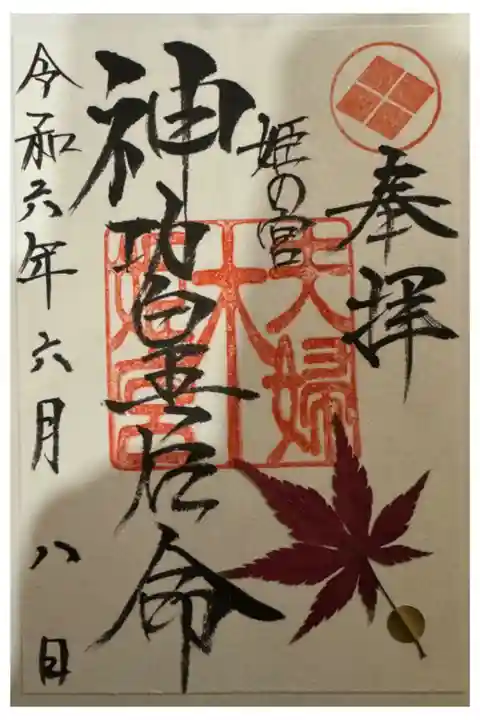 奉拝
夫婦
木
姫宮
姫の宮
神功皇后命
令和六年六月八日